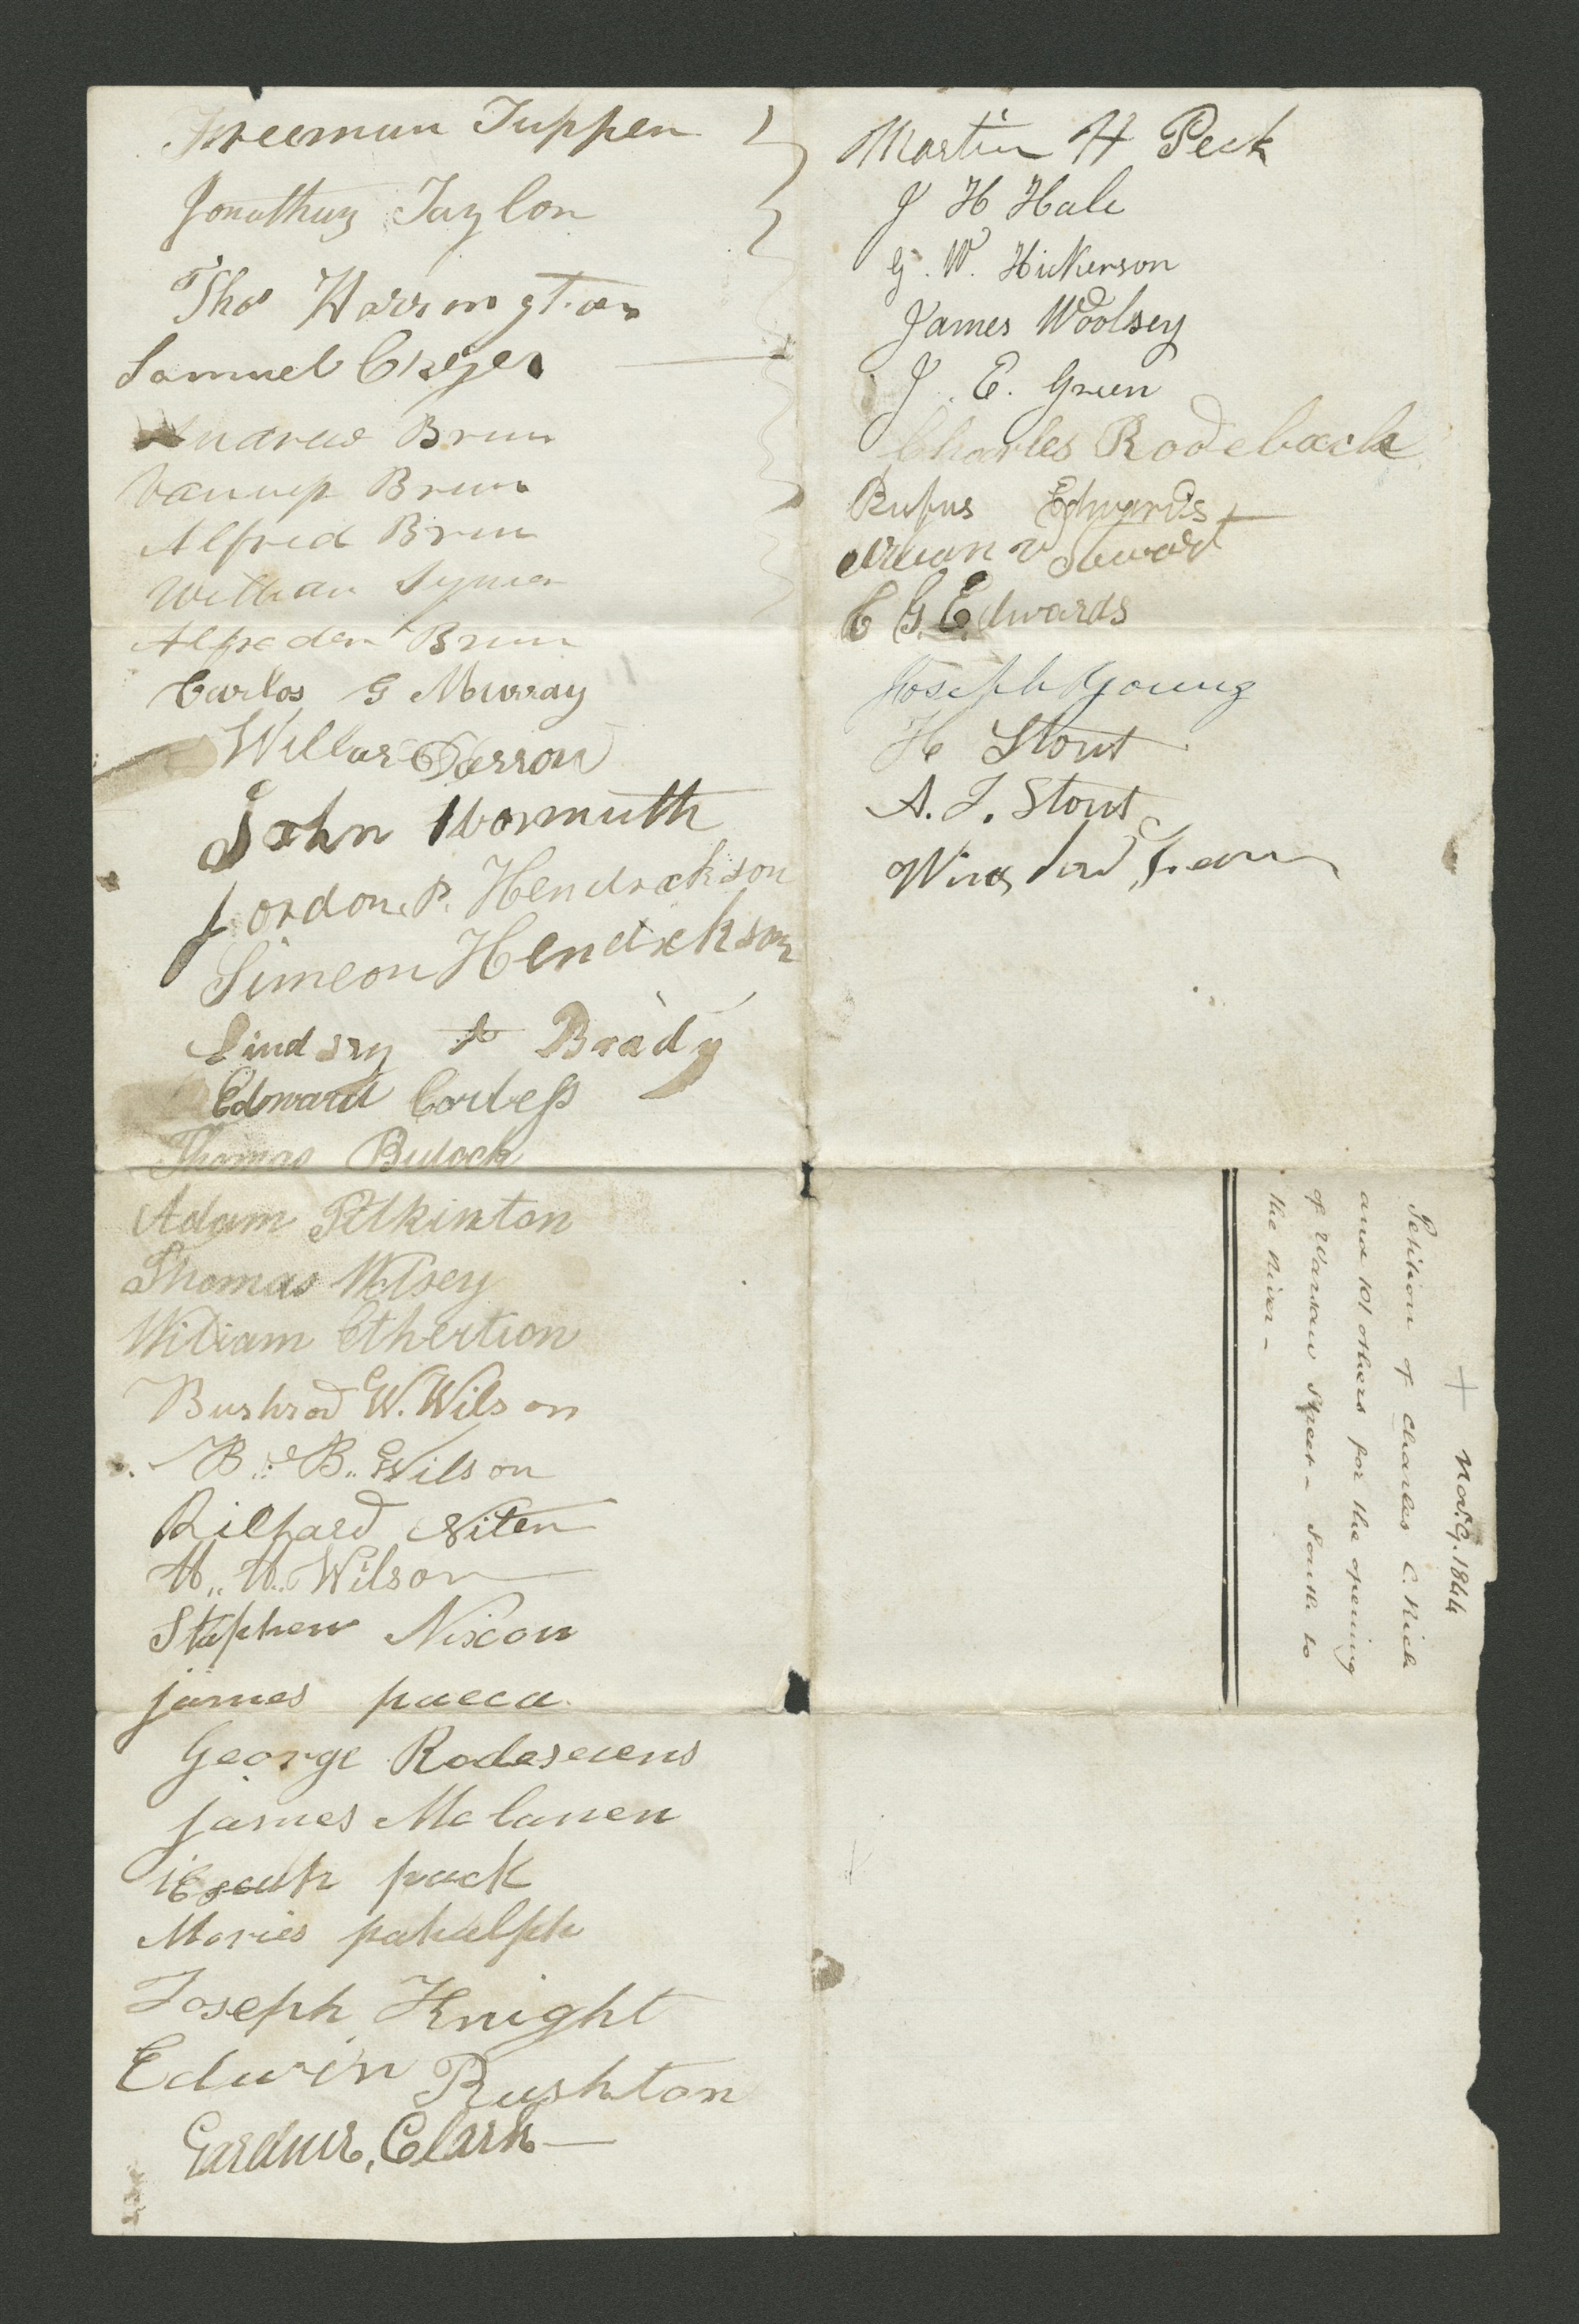 Freeman Tuppen
Jonathan Taylor
Thos Harrington
Samuel
Andrew Brim
Brim
Alfred Brim
William
Brim
Carlos G Murray
John Wormuth
Jordon P. Hendrickson
Simeon Hendrickson
Lindsey A Brady
Edward Corless
Thomas Bulock
Adam Pilkinton
Thomas Wolsey
William Ethertion
Bushrod W. Wilson
B.. B.. Wilson
Wilson
Stephen Nixon
james pacca
George
james
pack
Joseph Knight
Edwin Rushton
Gardner, Clark
Martin H Peck
J H Hale
G. W. Hickerson
James Woolsey
J. E. Green
Charles Rodeback
Rufus Edwards
Stewart
C G. Edwards
Joseph Young
H Stout
A. J. Stout
Nov. 9. 1844
Petition of Charles C. Rich
and 101 others for the opening
of Warsaw Street - South to
the River -